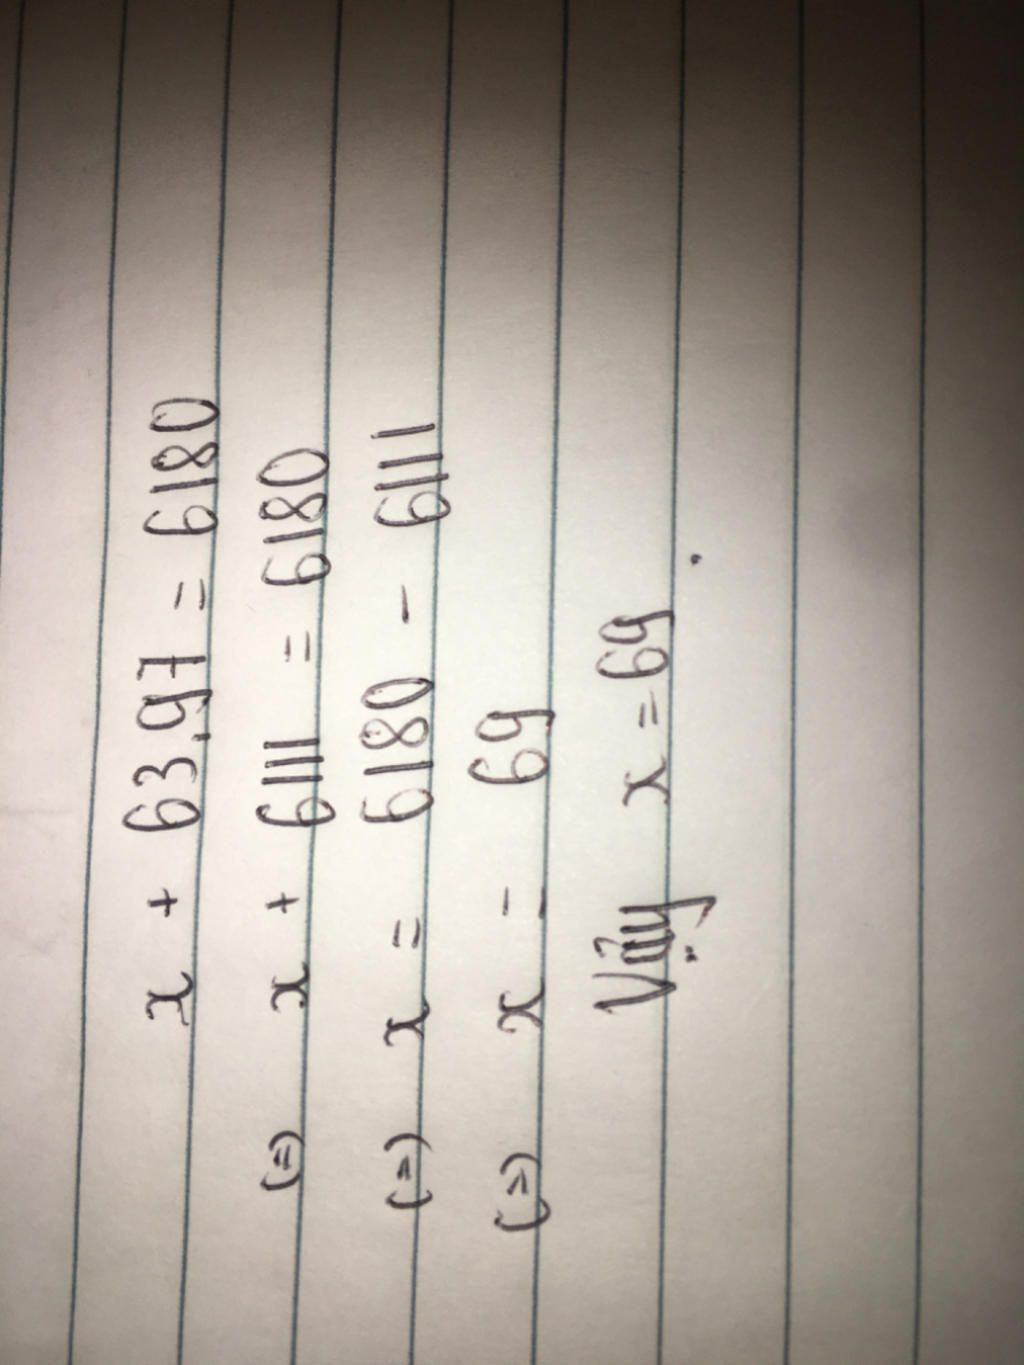 x + 63.97 = 6180
(=) x + 6111 = 6180
(=) x = 6180 - 6111
(=) x = 69
Vậy x = 69.